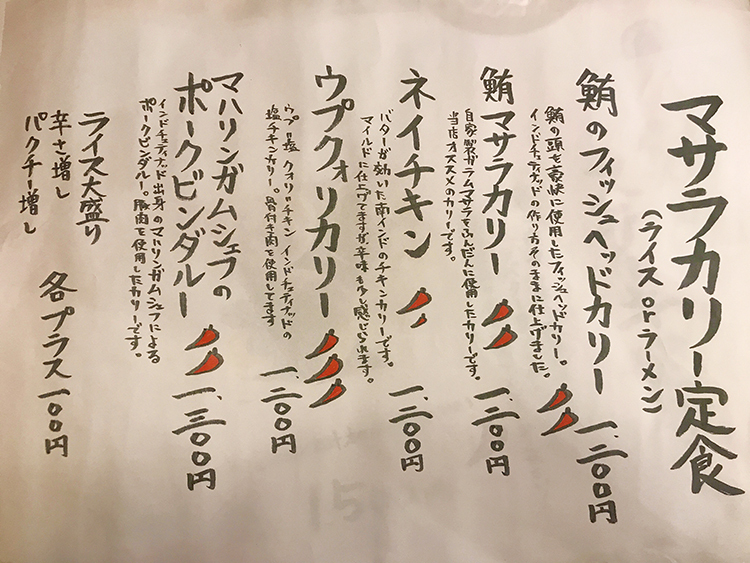 マサラカリー定食
(ライス or ラーメン)
鮪のフィッシュヘッドカリー 一、二〇〇円
鮪の頭を豪快に使用したフィッシュヘッドカリー。
インドチェティナッドの作り方そのままに仕上げました。
鮪マサラカリー 一、二〇〇円
自家製ガラムマサラをふんだんに使用したカリーです。
当店オススメのカリーです。
ネイチキン 一、二〇〇円
バターが効いた南インドのチキンカリーです。
マイルドに仕上げてますが、辛味も少し感じられます。
ウプクォリカリー 一、二〇〇円
ウプ=塩 クォリ=チキン インドチェティナッドの
塩チキンカリー。骨付き肉を使用してます
マハリンガムシェフの
ポークビンダルー 一、三〇〇円
インドチェティナッド出身のマハリンガムシェフによる
ポークビンダルー。豚肉を使用したカリーです。
ライス大盛り
辛さ増し 各プラス一〇〇円
パクチー増し